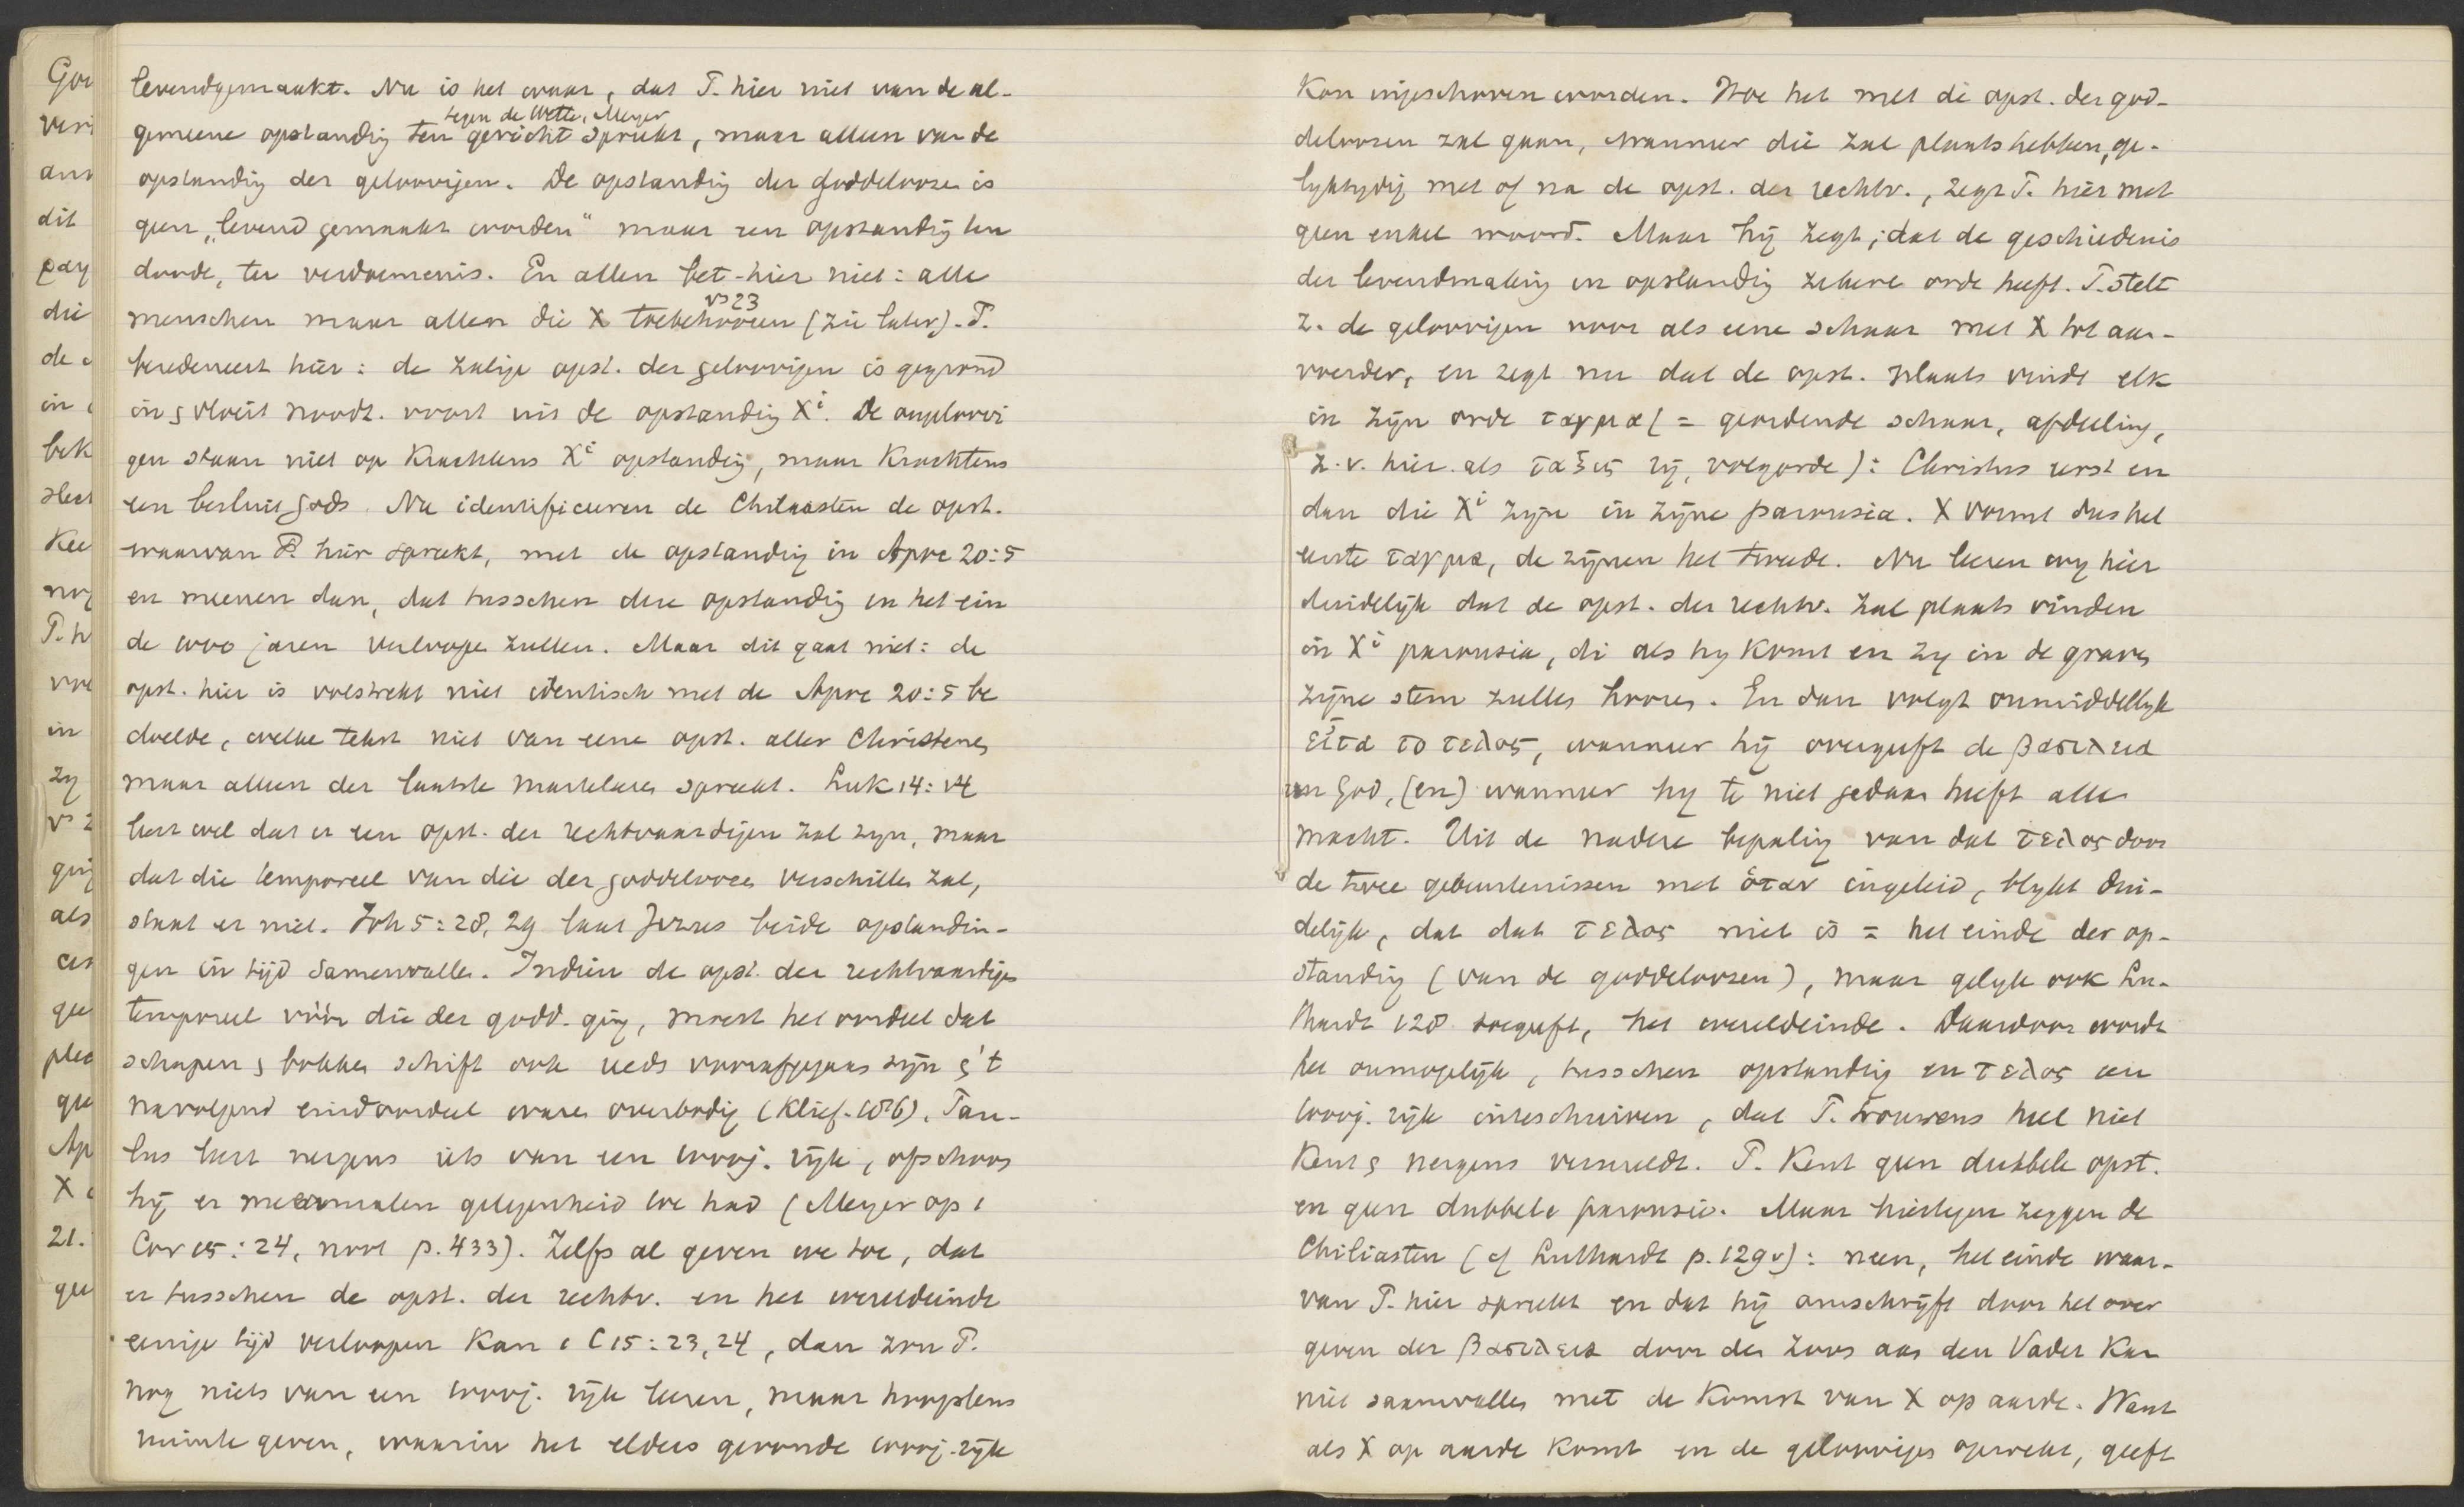 levendgemaakt. Nu is het waar, dat P. hier niet van de al-
tegen de Wette, Meyer
gemeene opstanding ten gericht spreekt, maar alleen van de
opstanding der geloovigen. De opstanding der goddeloozen is
geen „levend gemaakt worden" maar een opstanding ten
doode, ter verdoemenis. En allen bet. hier niet: alle
vs 23
menschen maar allen die X toebehooren (zie later). P.
beredeneert hier: de zalige opst. der geloovigen is gegrond
in & vloeit noodz. voort uit de opstanding Xi. De ongeloovi
gen staan niet op krachtens Xi opstanding, maar krachtens
een besluit Gods. Nu identificeeren de Chiliasten de opst.
waarvan P. hier spreekt, met de opstanding in Apoc 20:5
en meenen dan, dat tusschen deze opstanding en het ein
de 1000 jaren verloopen zullen. Maar dit gaat niet: de
opst. hier is volstrekt niet identisch met de Apoc 20:5 be
doelde, welke tekst niet van eene opst. aller Christenen
maar alleen der laatste martelaren spreekt. Luk 14:14
leert wel dat er een opst. der rechtvaardigen zal zijn, maar
dat die temporeel van die der goddeloozen verschillen zal,
staat er niet. Joh 5:28, 29 laat Jezus beide opstandin-
gen in tijd samenvallen. Indien de opst. der rechtvaardigen
temporeel vóór die der godd. ging, moest het oordeel dat
schapen & bokken schift ook reeds voorafgegaan zijn & 't
navolgend eindoordeel ware overbodig (Klief. 186). Pau-
lus leert nergens iets van een 1000j. rijk, ofschoon
hij er meermalen gelegenheid toe had (Meyer op 1
Cor 15:24, noot p. 433). Zelfs al geven we toe, dat
er tusschen de opst. der rechtv. en het wereldeinde
eenige tijd verloopen kan 1 C 15:23,24, dan zou P.
nog niets van een 1000j. rijk leeren, maar hoogstens
ruimte geven, waarin het elders gevonde 1000j. rijk
kon ingeschoven worden. Hoe het met de opst. der god-
deloozen zal gaan, wanneer die zal plaats hebben, ge-
lyktydig met of na de opst. der rechtv., zegt P. hier met
geen enkel woord. Maar hij zegt; dat de geschiedenis
der levendmaking en opstanding zekere orde heeft. P. stelt
z. de geloovigen voor als eene schaar met X tot aan-
voerder, en zegt nu dat de opst. plaats vindt elk
in zijn orde ταγμα (= geordende schaar, afdeeling,
z.v. hier als ταξις rij, volgorde): Christus eerst en
dan die Xi zijn in zijne parousia. X vormt dus het
eerste ταγμα, de zijnen het tweede. Nu leeren wy hier
duidelijk dat de opst. der rechtv. zal plaats vinden
in Xi parousia, di als hy komt en zy in de graven
zijne stem zullen hooren. En dan volgt onmiddellyk
εἶτα το τελος, wanneer hij overgeeft de βασιλεια
aan God, (en) wanneer hy te niet gedaan heeft alle
macht. Uit de nadere bepaling van dat τελος door
de twee gebeurtenissen met ὁταν ingeleid, blykt dui-
delijk, dat dat τελος niet is = het einde der op-
standing (van de goddeloozen), maar gelyk ook Lu-
thardt 128 toegeeft, het wereldeinde. Daardoor wordt
het onmogelijk, tusschen opstanding en τελος een
1000j. rijk inteschuiven, dat P. trouwens heel niet
kent & nergens vermeldt. P. kent geen dubbele opst.
en geen dubbele parousie. Maar hiertegen zeggen de
Chiliasten (cf Luthardt p. 129v): neen, het einde waar-
van P. hier spreekt en dat hij omschrijft door het over
geven der βασιλεια door den Zoon aan den Vader kan
niet saamvallen met de komst van X op aarde. Want
als X op aarde komt en de geloovigen opwekt, geeft